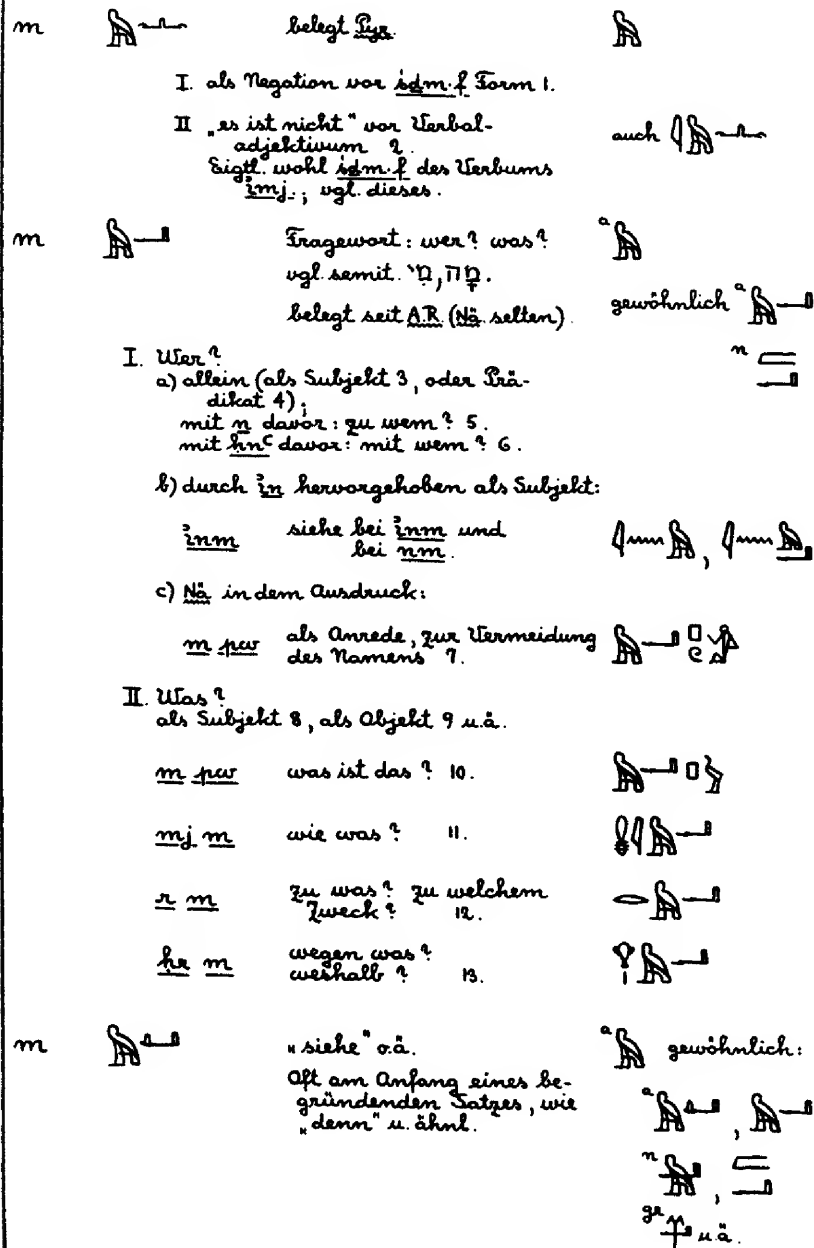 m belegt Pyr.
I. als Negation vor śdm.f Form 1.
II „es ist nicht" vor Verbal-
adjektivum 2. auch
Eigtl. wohl śdm.f des Verbums
imj.; vgl. dieses.
m Fragewort: wer? was? a
vgl. semit. מִי, מָה.
belegt seit A.R. (Nä. selten). gewöhnlich a
I. Wer? n
a) allein (als Subjekt 3, oder Prä-
dikat 4);
mit n davor: zu wem? 5.
mit ḥnꜥ davor: mit wem? 6.
b) durch ỉn hervorgehoben als Subjekt:
ỉnm siehe bei ỉnm und
bei nm.
c) Nä in dem Ausdruck:
m pw als Anrede, zur Vermeidung
des Namens 7.
II. Was?
als Subjekt 8, als Objekt 9 u.ä.
m pw was ist das? 10.
mj m wie was? 11.
r m zu was? zu welchem
Zweck? 12.
ḥr m wegen was?
weshalb? 13.
m „siehe" o.ä. a gewöhnlich:
Oft am Anfang eines be-
gründenden Satzes, wie a ,
„denn" u. ähnl.
n ,
gr u.ä.